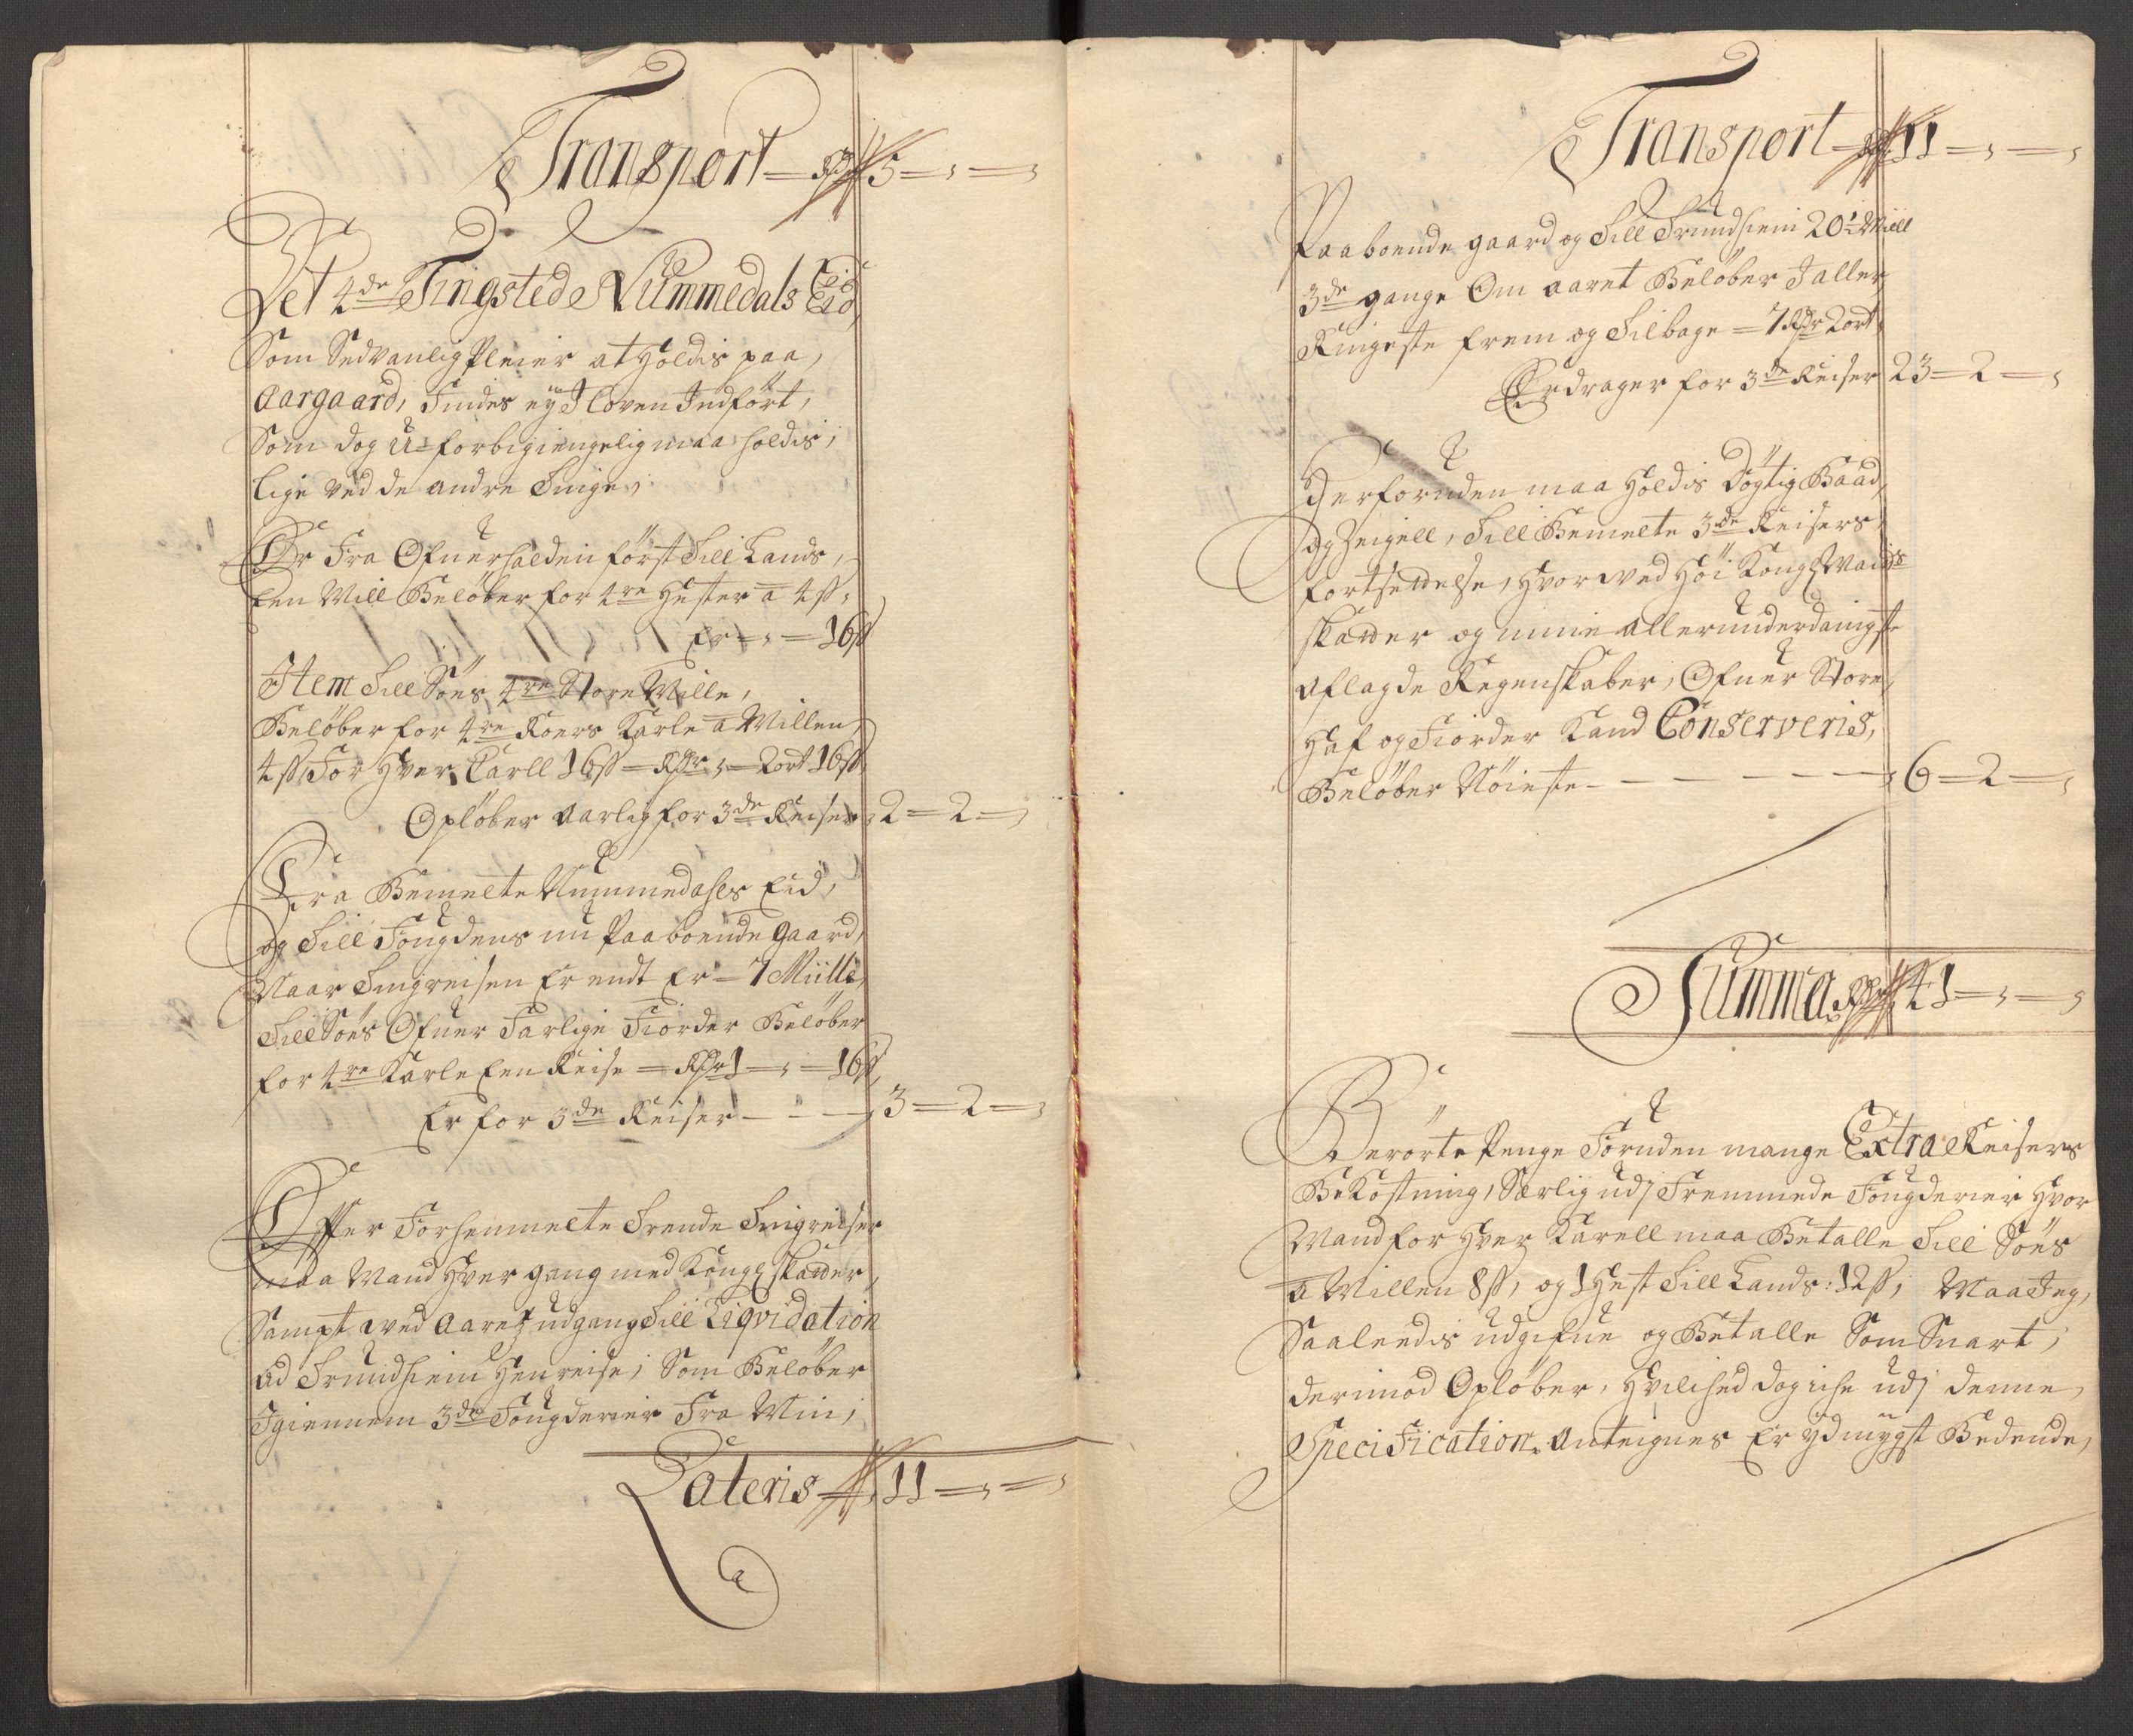 Transport – Rdr 5 – , – ,
Det 4de Tingsted Nummedals Eid,
Som Sedvanlig Pleier at Holdis paa,
Aargaard, Findes ey J Loven Indført,
Som dog U-forbigiengelig maa holdis,
lige ved de andre Tinge,
Er Fra Ofuerhalden først Till Lands,
Een Miil Beløber for 4re Hester a 4 ß,
Er – , – 16 ß
Item Till Søes 4re Store Mille,
Beløber for 4re Roers Karle a Millen
4 ß For Hver Karll 16 ß – Rdr , – 2 ort 16 ß
Opløber aarlig for 3de Reiser 2 – 2 – ,
Fra Bemelte Nummedahls Eid,
og Till Fougdens nu Paaboende gaard,
Naar Tingreisen Er endt Er – 7 Miille,
Till Søes Ofuer Farlige Fiorder Beløber
for 4re Karle Een Reise – Rdr 1 – , – 16 ß,
Er for 3de Reiser – – – 3 – 2 – ,
Effter Forhenmelte Trende Tingreiser
maa Mand Hver gang med Kongl Skatter,
Sampt ved Aaretz udgang Till Liqvidation
ad Trundhiem Henreise, Som Beløber
Igiennem 3de Fougderier Fra Min,
Lateris – 11 – , – ,
Transport – Rdr 11 – , – ,
Paaboende gaard og Till Trundhiem 20 1/2 Miill
3de gange Om aaret Beløber J aller
Ringeste frem og Tilbage – 7 Rdr 2 ort,
Bedrager for 3de Reiser 23 – 2 – ,
Herforuden maa Holdis Døgtig Baad,
og Zeigell, Till Bemelte 3de Reisers,
fortsettelse, Hvorved Høi Kongl Maijts
skatter og mine allerunderdanigste
aflagde Regenskaber, Ofuer Store,
Haf og Fiorder Kand Conserveris,
Beløber Nøieste – – – – – – 6 – 2 – ,
Summa Rdr 41 – , – ,
Berørte Penge Foruden mange Extra Reisers
Bekostning, Særlig udj Fremmede Fougderier Hvor
Mand for Hver Karell maa Betalle Till Søes
a Millen 8 ß, og 1 Hest Till Lands: 12 ß, Maa Jeg,
Saaleedis udgifue og Betalle Som Snart,
derimod Opløber, Hvilched dog iche udj denne,
Specification Anteignes Er ydmygst Bedende,